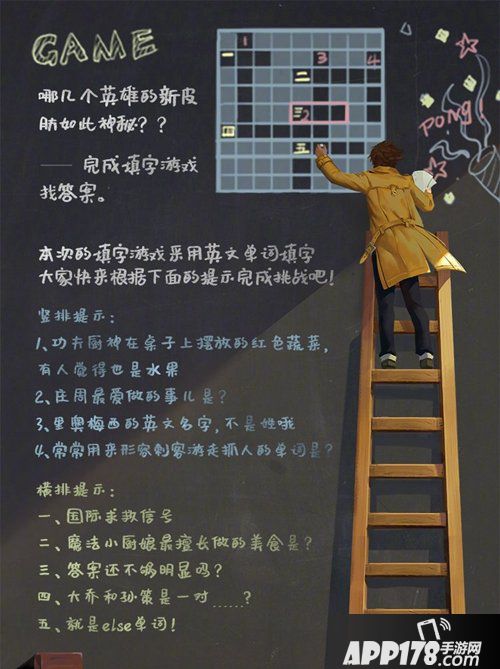 GAME
1
一
3
4
二
三2
四
五
PONG!
哪几个英雄的新皮
肤如此神秘??
—— 完成填字游戏
找答案。
本次的填字游戏采用英文单词填字
大家快来根据下面的提示完成挑战吧!
竖排提示:
1、功夫厨神在桌子上摆放的红色蔬菜,
有人觉得也是水果
2、庄周最爱做的事儿是?
3、里奥梅西的英文名字,不是姓哦
4、常常用来形容刺客游走抓人的单词是?
横排提示:
一、国际求救信号
二、魔法小厨娘最擅长做的美食是?
三、答案还不够明显吗?
四、大乔和孙策是一对……?
五、就是else单词!
APP178手游网
.com